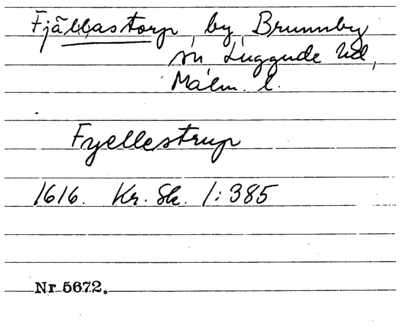 Fjällastorp, by, Brunnby
sn Luggude hd,
Malm. l.
Fyellestrup
1616. Kr. Sk. 1:385
Nr 5672.